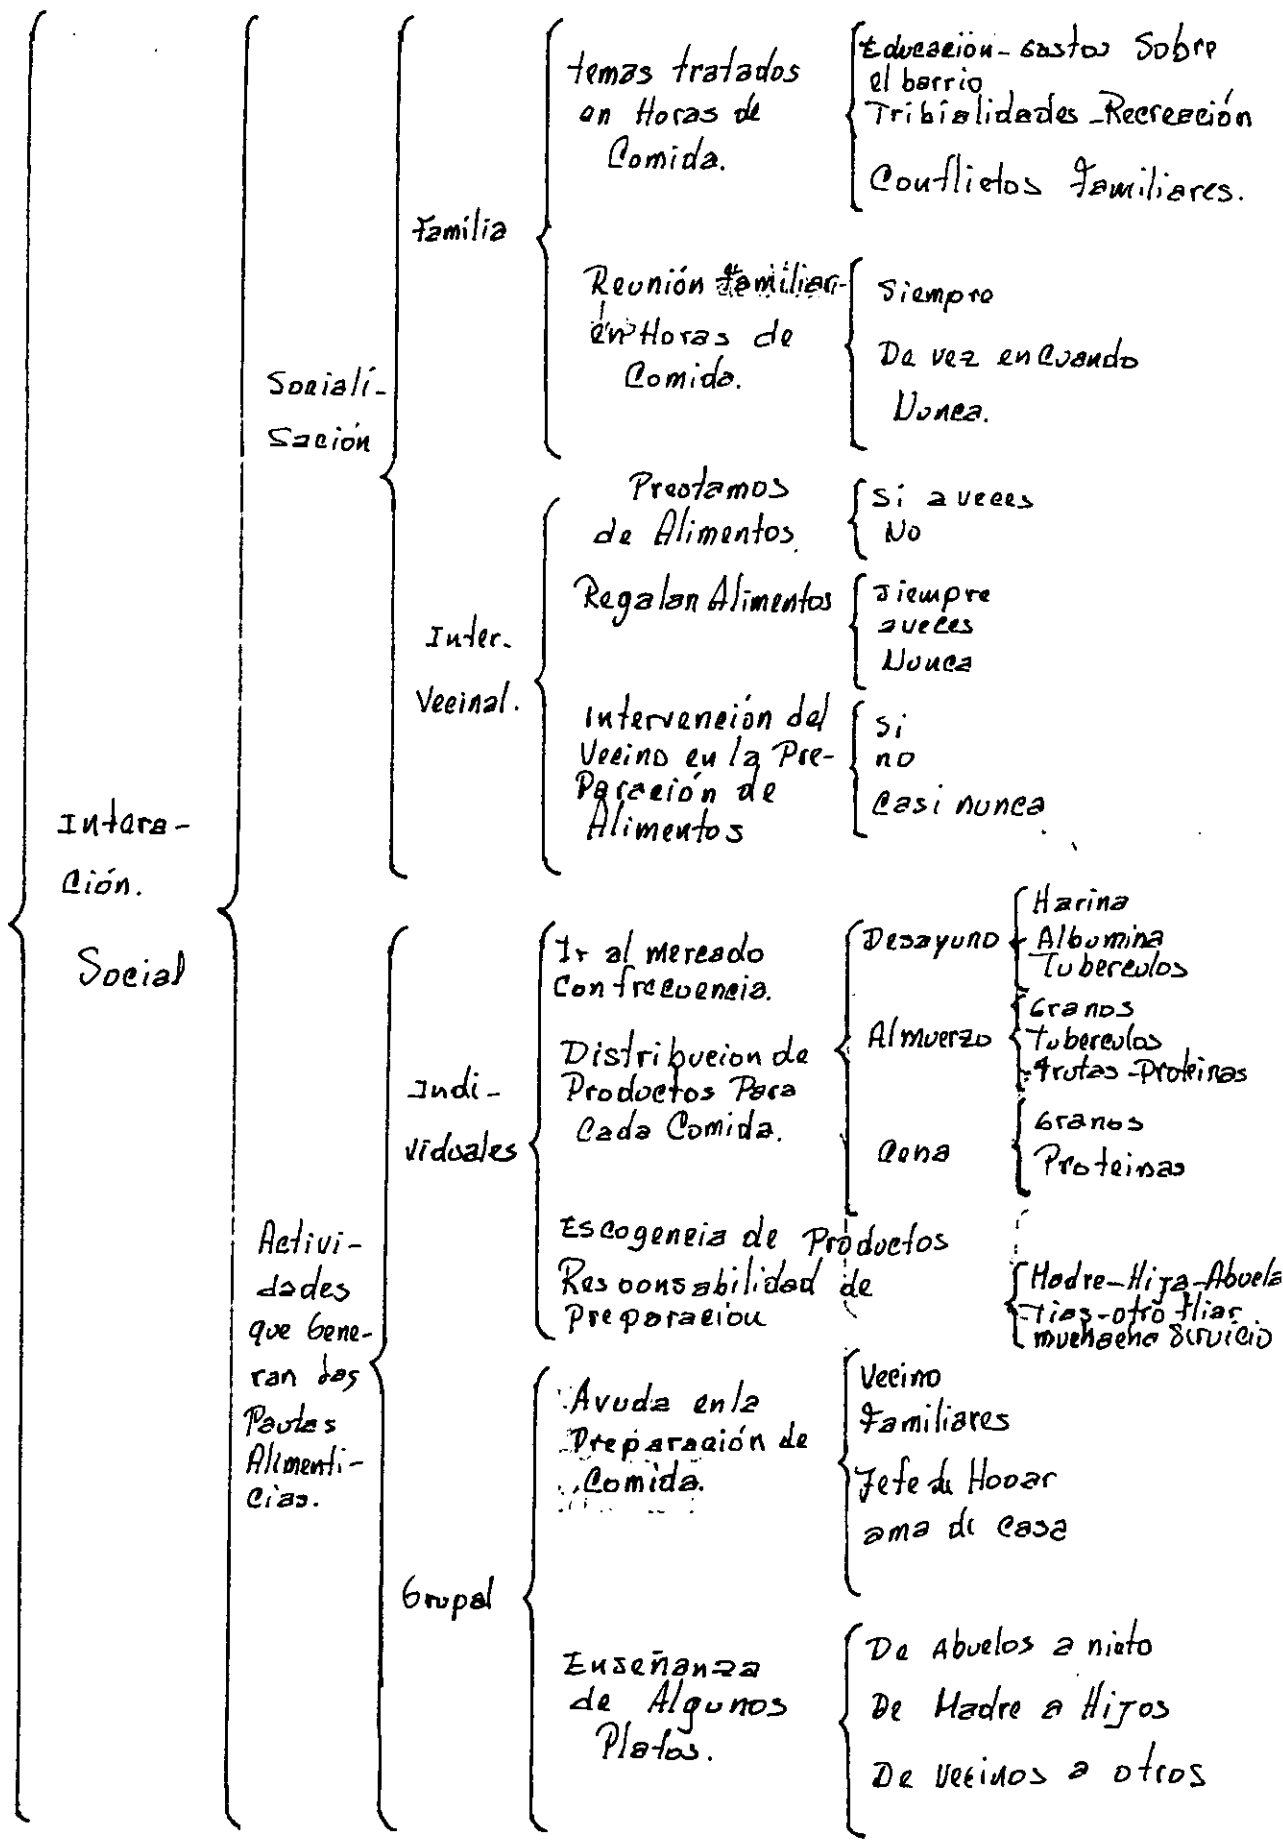 Intera-
ción.
Social
Sociali-
sación
Familia
temas tratados
en Horas de
Comida.
Educación - Gastos Sobre
el barrio
Tribialidades - Recreación
Conflictos Familiares.
Reunión Familiar
en Horas de
Comida.
Siempre
De vez en Cuando
Nunca.
Inter-
Vecinal.
Prestamos
de Alimentos
Si a veces
No
Regalan Alimentos
Siempre
aveces
Nunca
Intervención del
Vecino en la Pre-
Paración de
Alimentos
Si
no
Casi nunca
Activi-
dades
que Gene-
ran las
Pautas
Alimenti-
cias.
Indi-
viduales
Ir al mercado
Con frecuencia.
Distribucion de
Productos Para
Cada Comida.
Desayuno
Harina
Albumina
Tuberculos
Almuerzo
Granos
Tuberculos
Frutas - Proteinas
Cena
Granos
Proteinas
Escogencia de Productos
Responsabilidad de
Preparacion
Madre - Hija - Abuela
Tias - otro fliar
muchacha servicio
Grupal
Ayuda en la
Preparación de
Comida.
Vecino
Familiares
Jefe de Hogar
ama de casa
Enseñanza
de Algunos
Platos.
De Abuelos a nieto
De Madre a Hijos
De Vecinos a otros